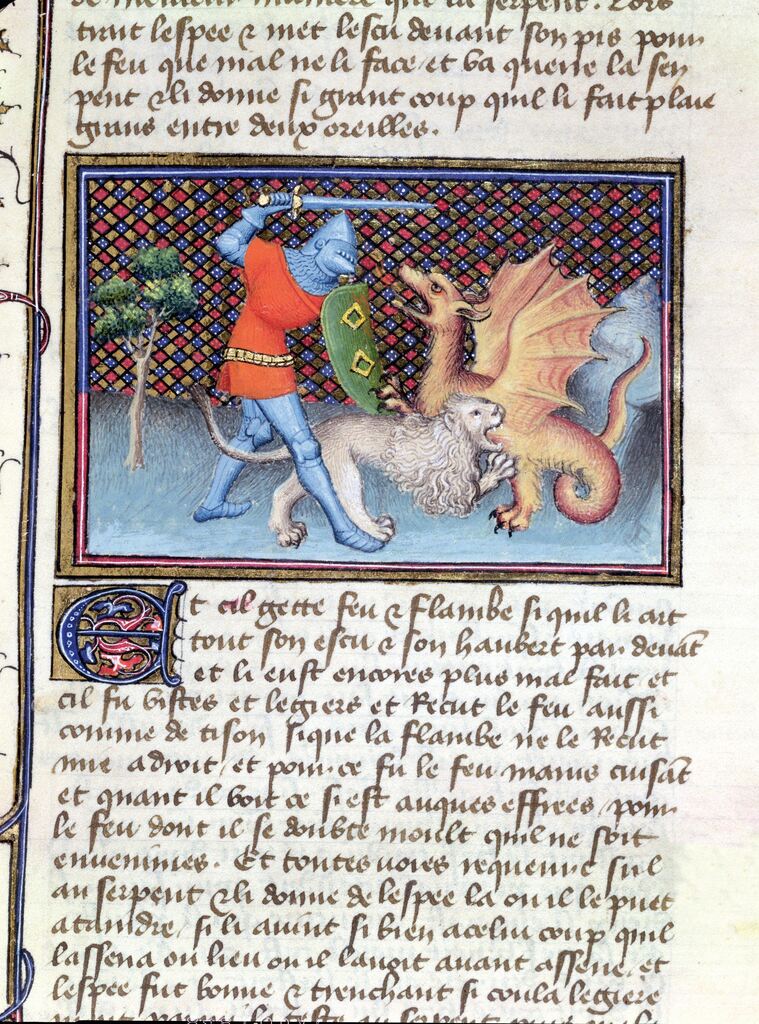 de meilleur maniere que la serpent. Lors
trait lespee & met lescu deuant son pis pour
le feu que mal ne li face et va querre la ser
pent & li donne si grant coup quil li fait plaie
grans entre deux oreilles.
Et cil gette feu & flambe si quil li art
tout son escu & son haubert par deuant
et li eust encores plus mal fait et
cil fu vistes et legiers et Recut le feu aussi
comme de tison si que la flambe ne le Recut
mie a droit et pour ce fu le feu mains cuisant
et quant il voit ce si est auques effrees pour
le feu dont il se doubte moult quil ne soit
enuenimes. Et toutes voies requeurt sul
au serpent & li donne de lespee la ou il le puet
ataindre, si li auint si bien a celui coup quil
lassena ou lieu ou il lauoit auant assene, et
lespee fut bonne & trenchant si coula legiere
ment parmi la teste au serpent